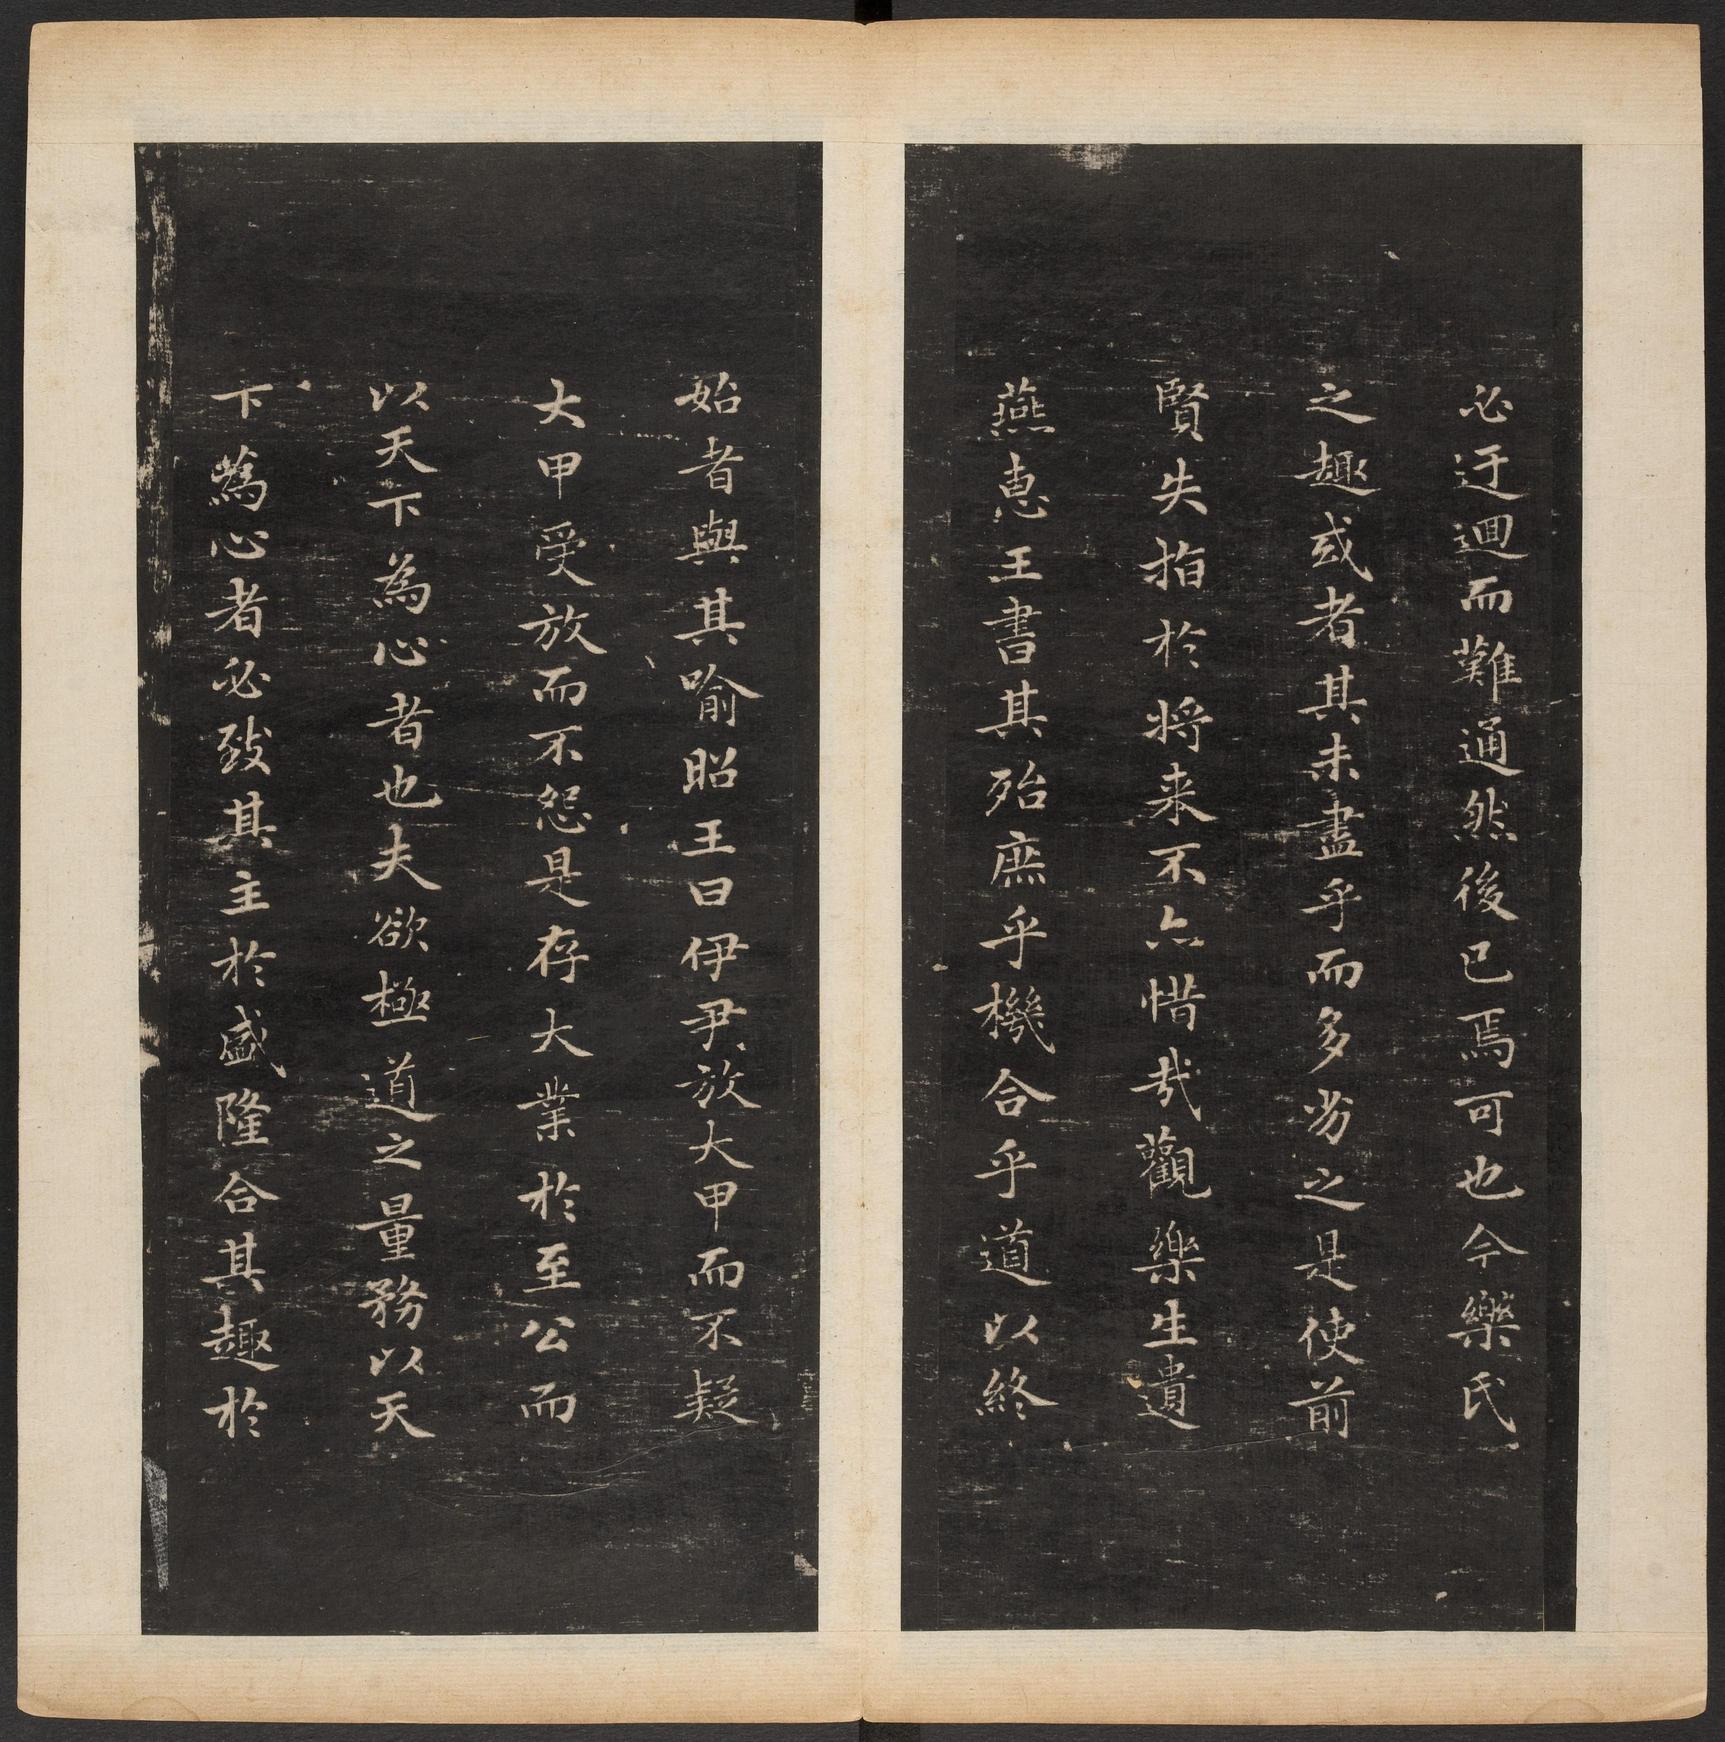 必迂迴而難通然後已焉可也今樂氏
之趣或者其未盡乎而多劣之是使前
賢失指於將来不亦惜哉觀樂生遺
燕惠王書其殆庶乎機合乎道以終
始者與其喻昭王曰伊尹放大甲而不疑
大甲受放而不怨是存大業於至公而
以天下為心者也夫欲極道之量務以天
下為心者必致其主於盛隆合其趣於